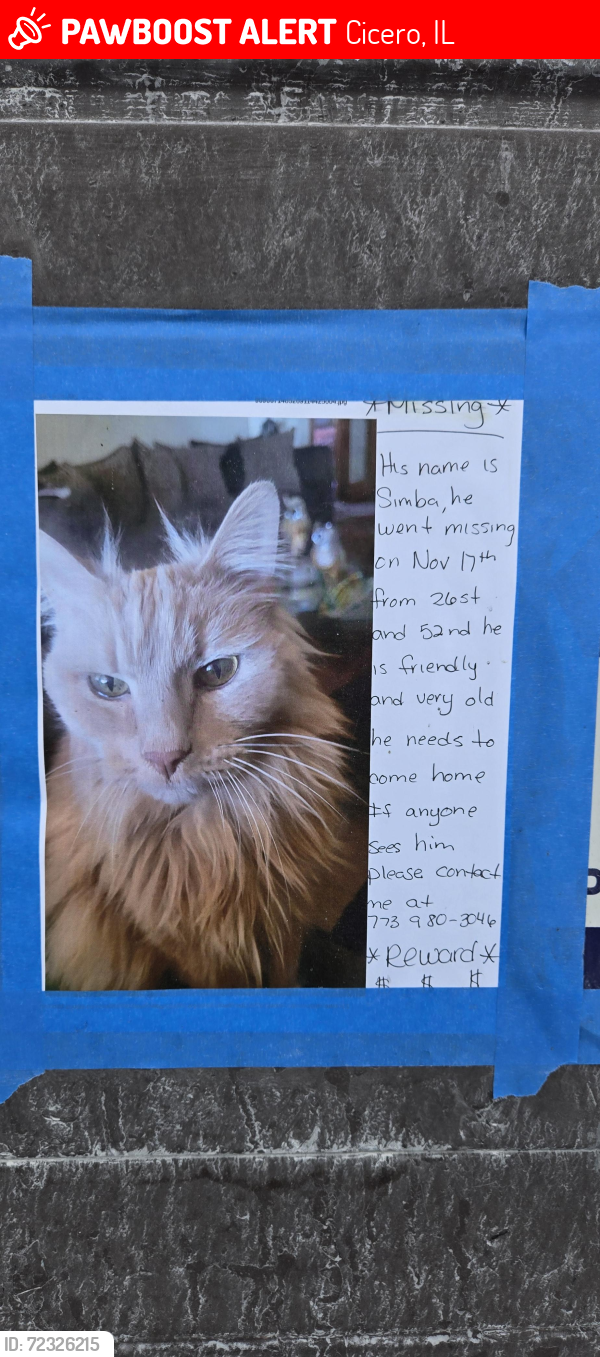 PAWBOOST ALERT Cicero, IL
*Missing*
His name is
Simba, he
went missing
on Nov 17th
from 26st
and 52nd he
is friendly
and very old
he needs to
come home
If anyone
sees him
please contact
me at
773 980-3046
*Reward*
$ $ $
ID: 72326215